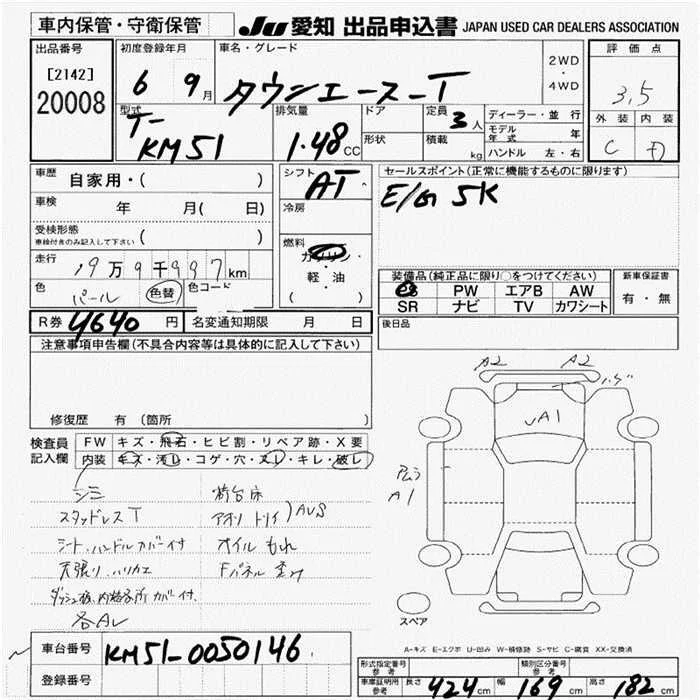 車内保管・守衛保管 JU 愛知 出品申込書 JAPAN USED CAR DEALERS ASSOCIATION
出品番号 [2142] 20008
初度登録年月 6 9月
車名・グレード タウンエース-T
2WD・4WD
評価点 3.5
外装 C 内装 D
型式 T-KM51
排気量 1.48CC
ドア
形状
定員 3人
積載 kg
ディーラー・並行
モデル年式 年
ハンドル 左・右
車歴 自家用・( )
車検 年 月( 日)
受検形態 車検付きのみ記入して下さい ( )
走行 19万9千997km
色 パール 色替 色コード
シフト AT
冷房
燃料 ガソリン・軽・油 ( )
セールスポイント(正常に機能するものに限ります)
E/G 5K
装備品(純正品に限り○をつけてください)
PS PW エアB AW
SR ナビ TV カワシート
新車保証書 有・無
R券 4640円 名変通知期限 月 日
後日品
注意事項申告欄(不具合内容等は具体的に記入して下さい)
修復歴 有 (箇所
検査員記入欄 FW キズ・飛石・ヒビ割・リペア跡・X要
内装 キズ・汚レ・コゲ・穴・スレ・キレ・破レ
シミ 荷台床
スタッドレスT アオリ トリイ)AUS
シート、ハンドルカバー付 オイルもれ
天張り、ハリカエ Fパネル 歪み
カバー付、
各AU
A2 A2
UA1
A1
スペア
A-キズ E-エクボ U-凹み W-補修跡 S-サビ C-腐食 XX-交換済
車台番号 KM51-0050146
登録番号
型式指定番号 参考 類別区分番号 参考
車庫証明用 参考 長さ 424cm 幅 169cm 高さ 182cm